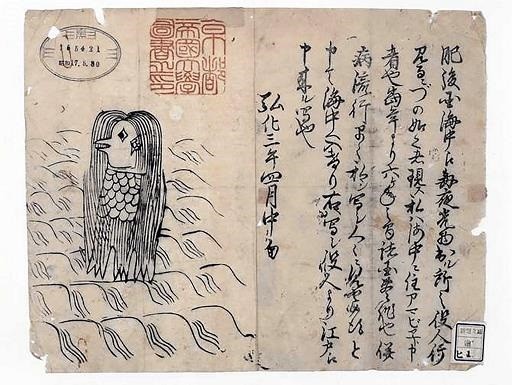 肥後国海中え毎夜光物出ル所之役人行
見るニづの如く者現ス私ハ海中ニ住アマビヱト申
者也当年より六ヶ年之間諸国豊作也併
病流行早々私シ写シ人々ニ見せ候得と
申て海中へ入けり右写シ役人より江戸え
申来ル写也
弘化三年四月中旬
京都
帝國大學
圖書之印
165421
17.5.30